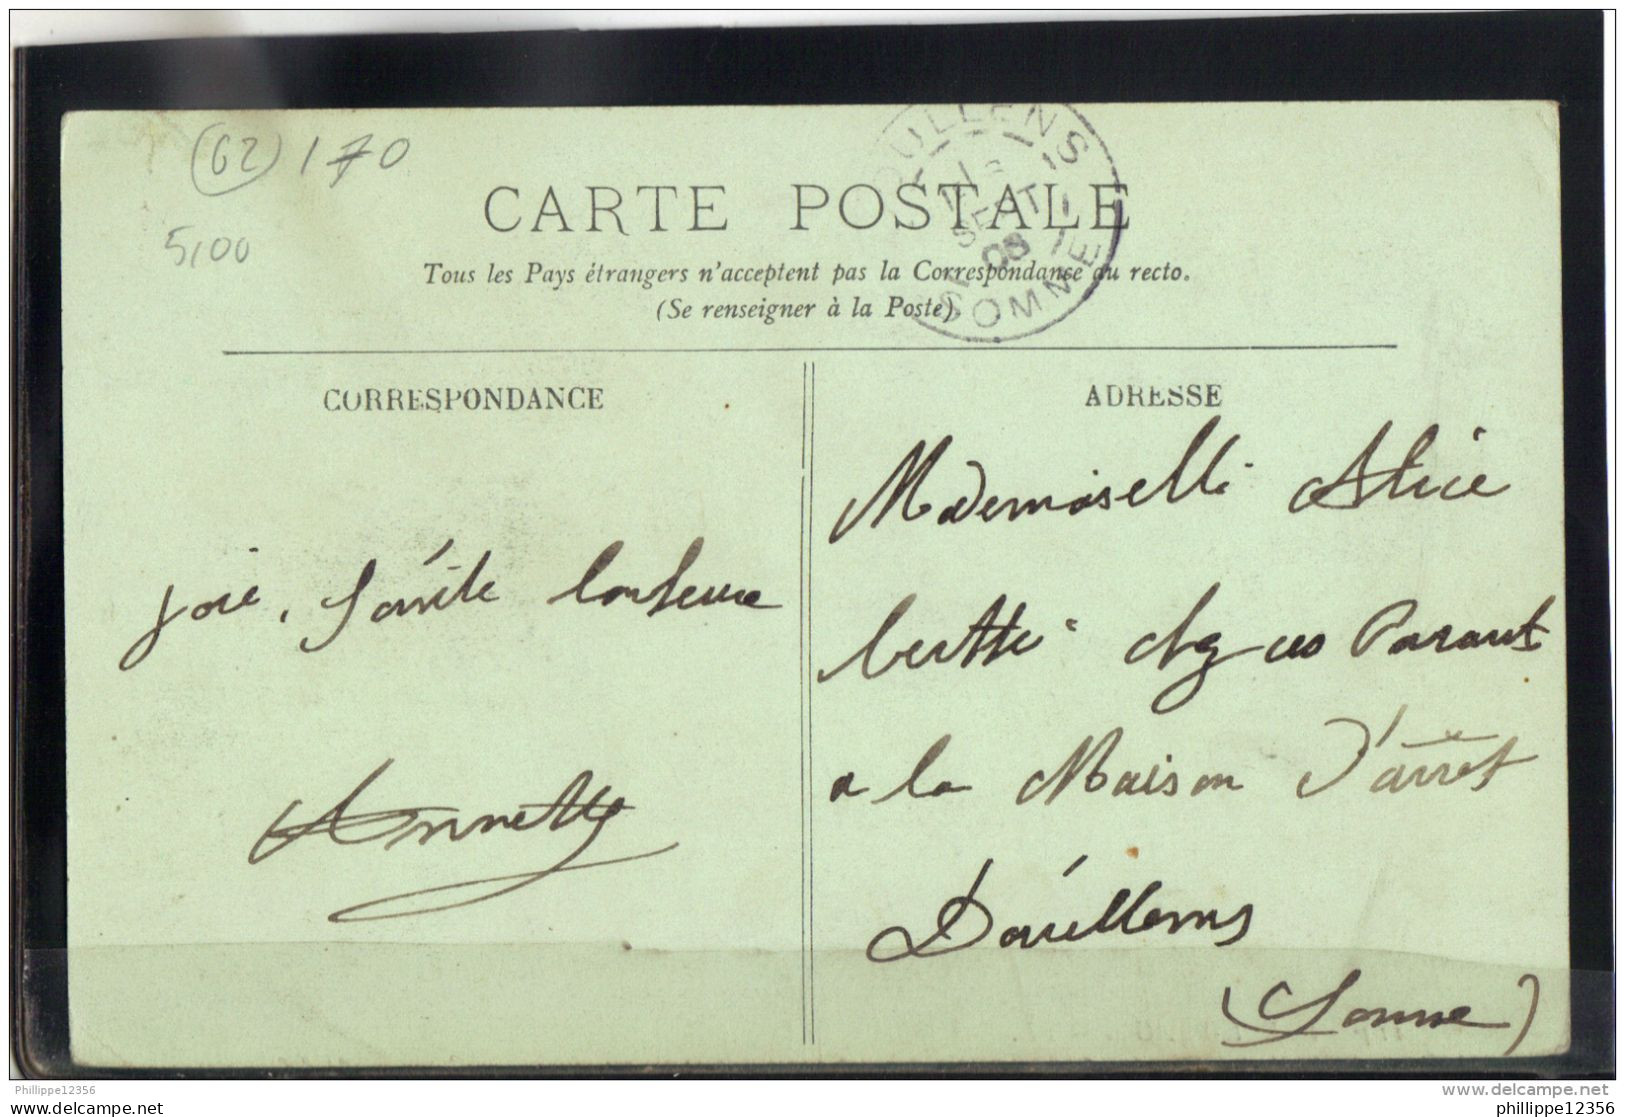 (62) 170
5,00
DOULLENS
SEPT
08
SOMME
CARTE POSTALE
Tous les Pays étrangers n'acceptent pas la Correspondance au recto.
(Se renseigner à la Poste)
CORRESPONDANCE
ADRESSE
joie, Santé bonheur
Annette
Mademoiselle Alice
chez ses Parents
a la Maison D'arrêt
Doullens
(Somme)
Philippe12356
www.delcampe.net
philippe12356
phillippe12356